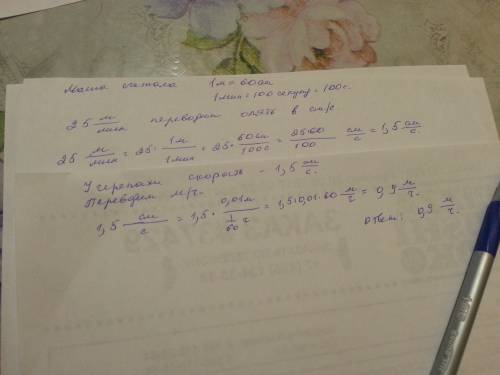 Маша считала 1м = 60см
1мин = 100 секунд = 100с.
25 м/мин переводим опять в см/с.
25 м/мин = 25 · 1м/1мин = 25 · 60см/100с = 25·60/100 см/с = 1,5 см/с.
У черепахи скорость - 1,5 см/с.
Переводим м/ч.
1,5 см/с = 1,5 · 0,01м/(1/60 ч) = 1,5·0,01·60 м/ч = 0,9 м/ч.
Ответ: 0,9 м/ч.